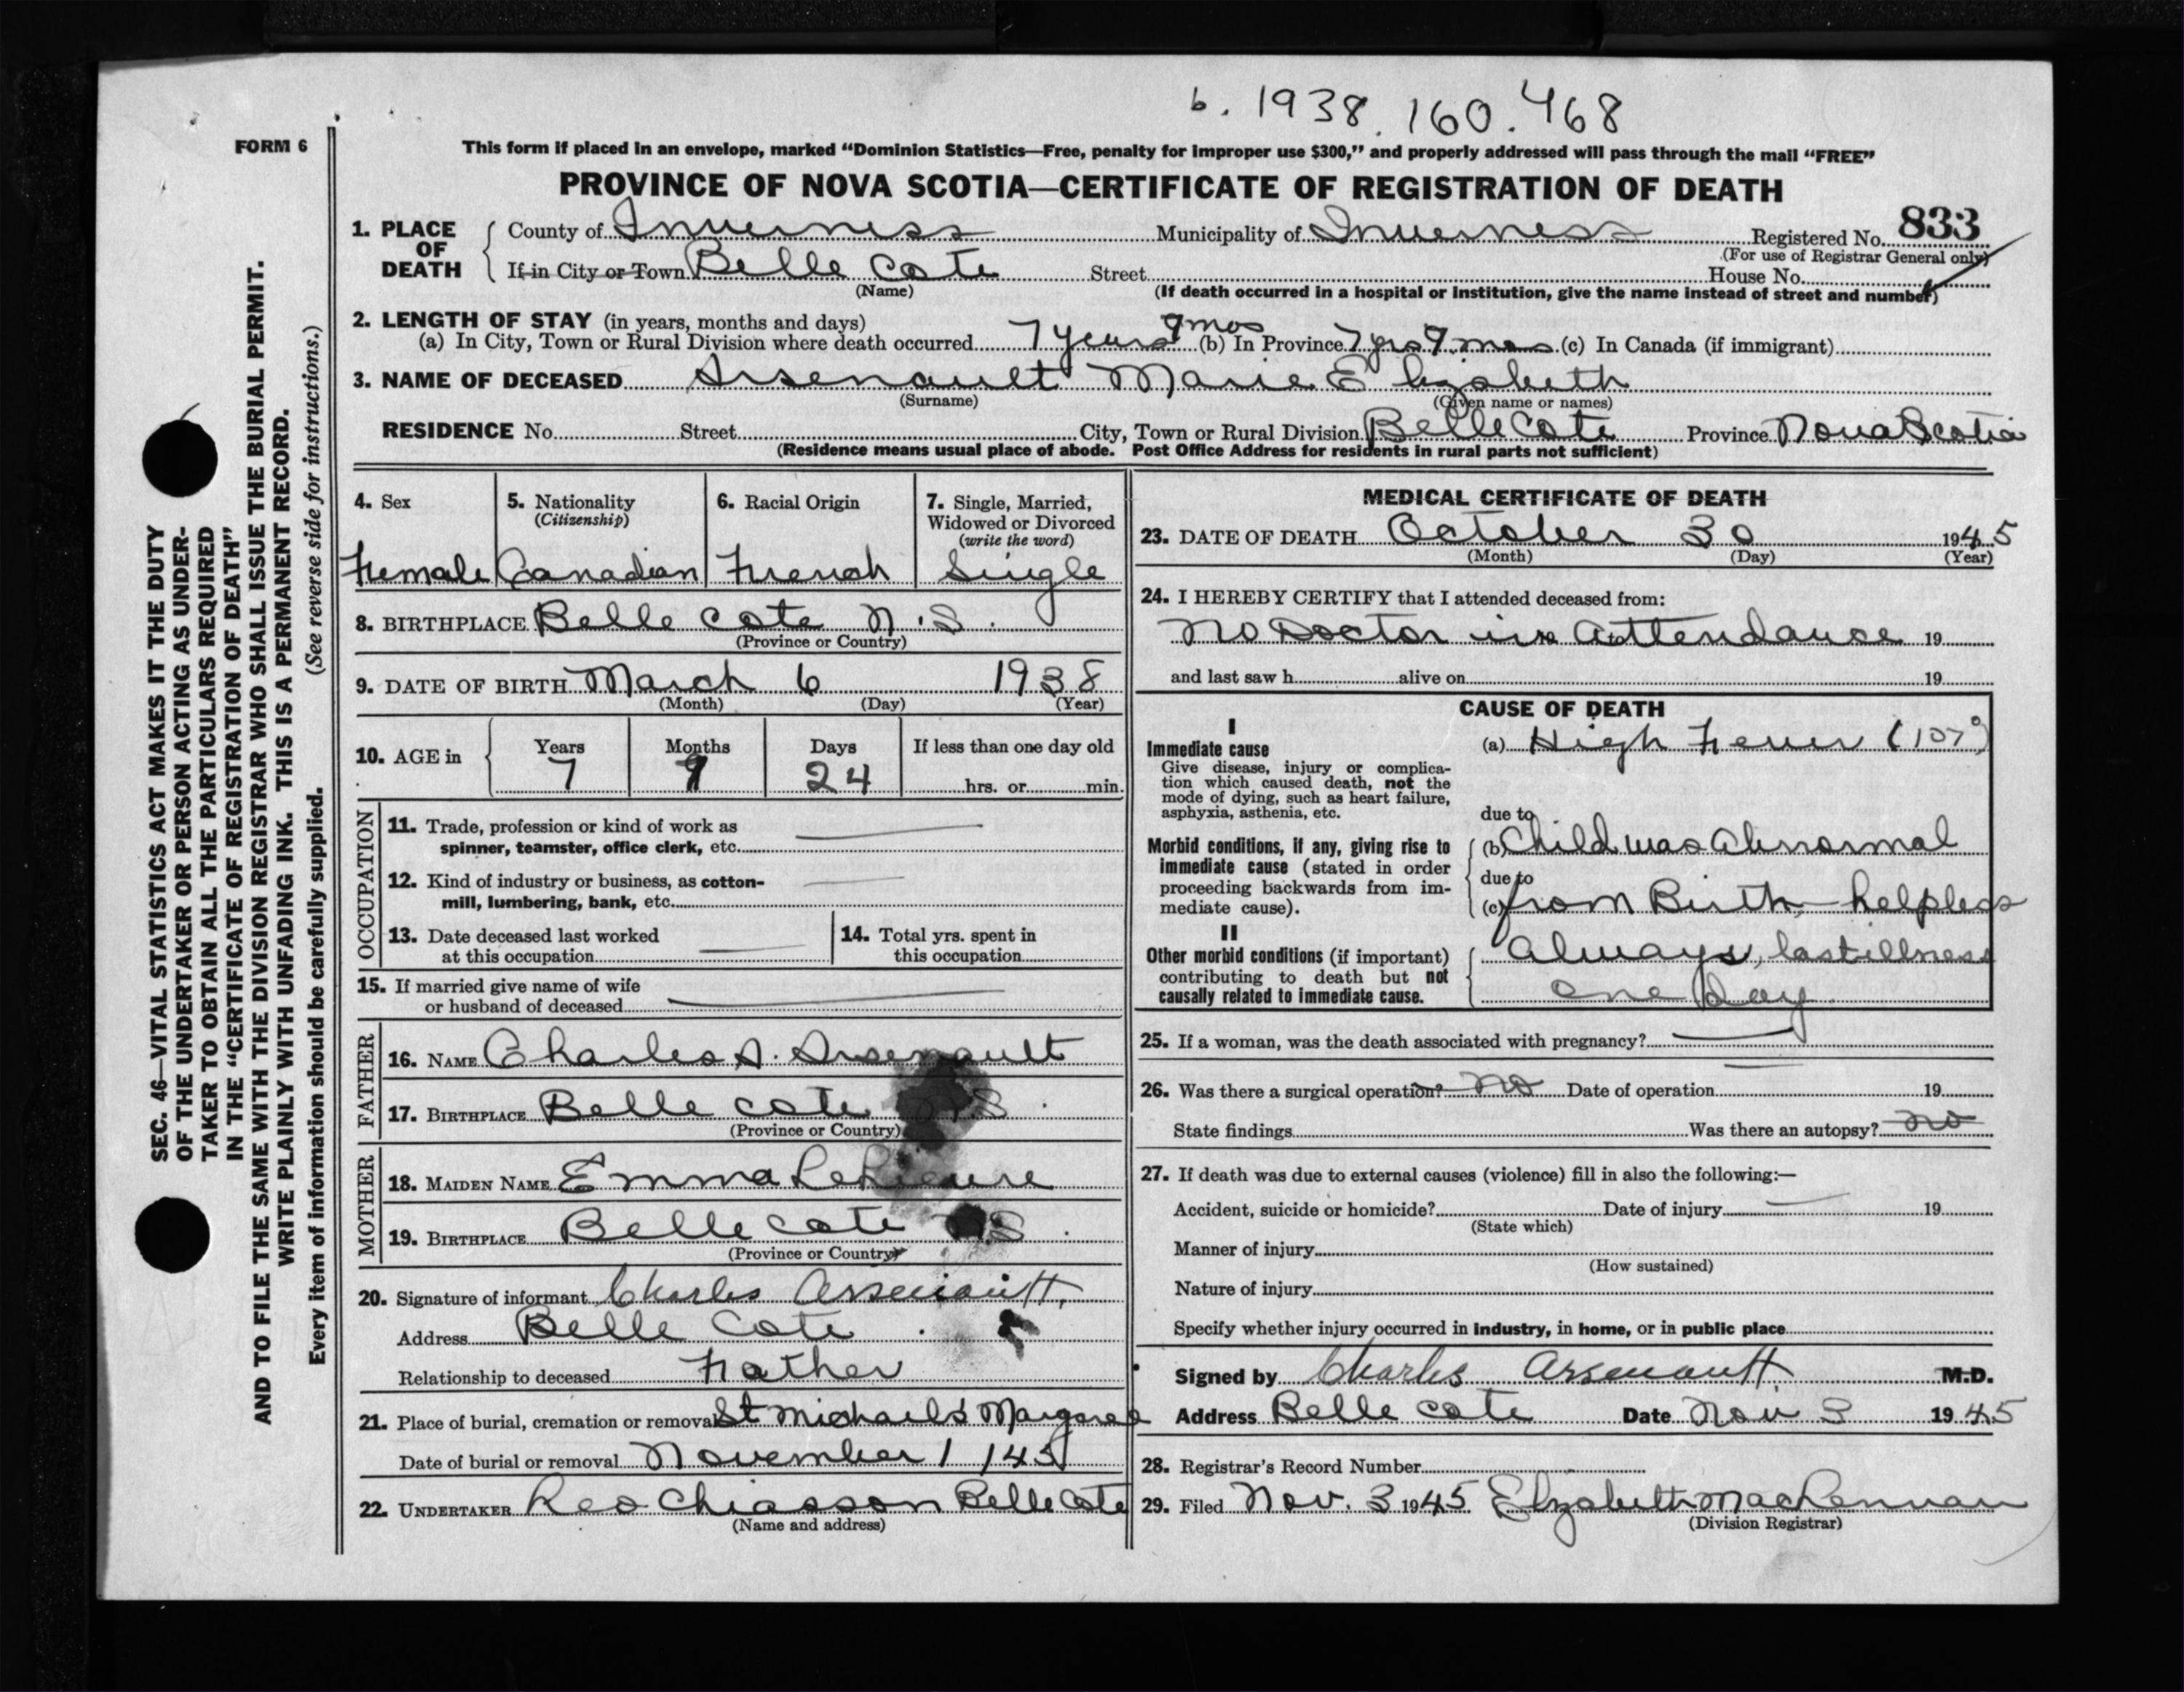 b. 1938. 160. 468
FORM 6
This form if placed in an envelope, marked "Dominion Statistics—Free, penalty for improper use $300," and properly addressed will pass through the mail "FREE"
PROVINCE OF NOVA SCOTIA—CERTIFICATE OF REGISTRATION OF DEATH
SEC. 46—VITAL STATISTICS ACT MAKES IT THE DUTY
OF THE UNDERTAKER OR PERSON ACTING AS UNDER-
TAKER TO OBTAIN ALL THE PARTICULARS REQUIRED
IN THE "CERTIFICATE OF REGISTRATION OF DEATH"
AND TO FILE THE SAME WITH THE DIVISION REGISTRAR WHO SHALL ISSUE THE BURIAL PERMIT.
WRITE PLAINLY WITH UNFADING INK. THIS IS A PERMANENT RECORD.
Every item of information should be carefully supplied. (See reverse side for instructions.)
1. PLACE OF DEATH
County of Inverness Municipality of Inverness Registered No. 833
(For use of Registrar General only)
If in City or Town Belle Cote Street House No.
(Name) (If death occurred in a hospital or institution, give the name instead of street and number)
2. LENGTH OF STAY (in years, months and days)
(a) In City, Town or Rural Division where death occurred 7 years 9 mos (b) In Province 7 yrs 9 mos (c) In Canada (if immigrant)
3. NAME OF DECEASED Arsenault Marie Elizabeth
(Surname) (Given name or names)
RESIDENCE No. Street City, Town or Rural Division Belle Cote Province Nova Scotia
(Residence means usual place of abode. Post Office Address for residents in rural parts not sufficient)
4. Sex 5. Nationality 6. Racial Origin 7. Single, Married,
(Citizenship) Widowed or Divorced
(write the word)
Female Canadian French Single
8. BIRTHPLACE Belle Cote N.S.
(Province or Country)
9. DATE OF BIRTH March 6 1938
(Month) (Day) (Year)
10. AGE in Years Months Days If less than one day old
7 9 24 hrs. or min.
OCCUPATION
11. Trade, profession or kind of work as
spinner, teamster, office clerk, etc.
12. Kind of industry or business, as cotton-
mill, lumbering, bank, etc.
13. Date deceased last worked 14. Total yrs. spent in
at this occupation this occupation
15. If married give name of wife
or husband of deceased
FATHER
16. NAME Charles A. Arsenault
17. BIRTHPLACE Belle Cote N.S.
(Province or Country)
MOTHER
18. MAIDEN NAME Emma
19. BIRTHPLACE Belle Cote N.S.
(Province or Country)
20. Signature of informant Charles Arsenault
Address Belle Cote
Relationship to deceased Father
21. Place of burial, cremation or removal St Michaels Margaree
Date of burial or removal November 1 /45
22. UNDERTAKER Leo Chiasson Belle Cote
(Name and address)
MEDICAL CERTIFICATE OF DEATH
23. DATE OF DEATH October 30 1945
(Month) (Day) (Year)
24. I HEREBY CERTIFY that I attended deceased from:
No Doctor in Attendance 19
and last saw h alive on 19
CAUSE OF DEATH
I
Immediate cause (a) High Fever (107°)
Give disease, injury or complica-
tion which caused death, not the
mode of dying, such as heart failure,
asphyxia, asthenia, etc. due to
Morbid conditions, if any, giving rise to (b) Child was Abnormal
immediate cause (stated in order
proceeding backwards from im- due to
mediate cause). (c) from Birth, helpless
II
Other morbid conditions (if important) always, last illness
contributing to death but not
causally related to immediate cause. one day.
25. If a woman, was the death associated with pregnancy?
26. Was there a surgical operation? No Date of operation 19
State findings Was there an autopsy? No
27. If death was due to external causes (violence) fill in also the following:—
Accident, suicide or homicide? Date of injury 19
(State which)
Manner of injury
(How sustained)
Nature of injury
Specify whether injury occurred in industry, in home, or in public place
Signed by Charles Arsenault M.D.
Address Belle Cote Date Nov 3 1945
28. Registrar's Record Number
29. Filed Nov. 3 1945 Elizabeth MacLennan
(Division Registrar)